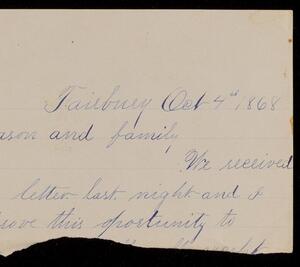 Fairbury Oct 4th 1868
ason and family
We received
letter last night and I
rove this oportunity to